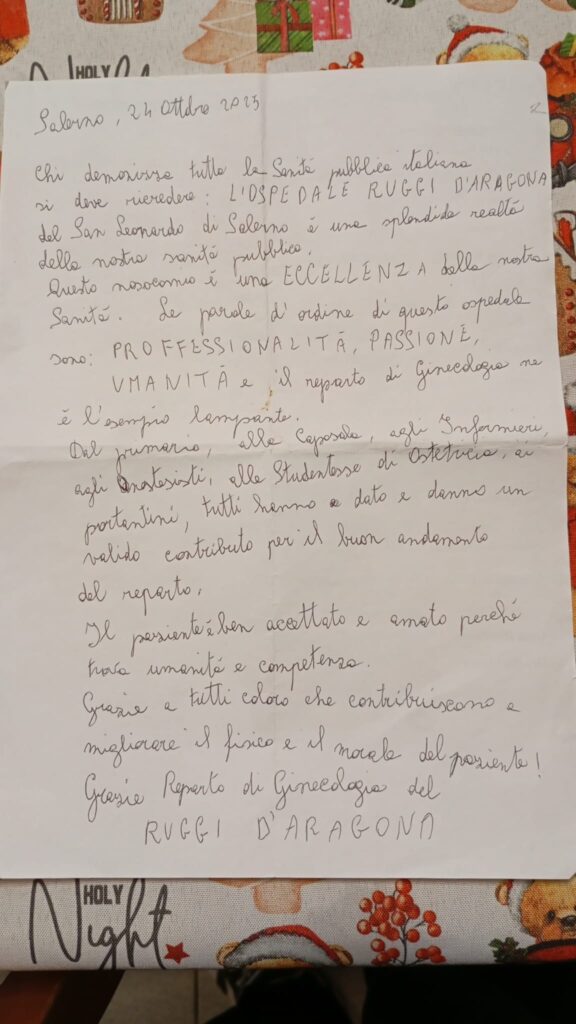 HOLY
Salerno, 24 Ottobre 2025
Chi demonizza tutta la Sanità pubblica italiana
si deve ricredere: L'OSPEDALE RUGGI D'ARAGONA
del San Leonardo di Salerno è una splendida realtà
della nostra sanità pubblica.
Questo nosocomio è una ECCELLENZA della nostra
Sanità. Le parole d'ordine di questo ospedale
sono: PROFFESSIONALITÀ, PASSIONE,
UMANITÀ e il reparto di Ginecologia ne
è l'esempio lampante.
Dal primario, alla Caposala, agli Infermieri,
agli Anestesisti, alle Studentesse di Ostetricia, ai
portantini, tutti hanno dato e danno un
valido contributo per il buon andamento
del reparto.
Il paziente è ben accettato e amato perché
trova umanità e competenza.
Grazie a tutti coloro che contribuiscono a
migliorare il fisico e il morale del paziente!
Grazie Reparto di Ginecologia del
RUGGI D'ARAGONA
HOLY
Night